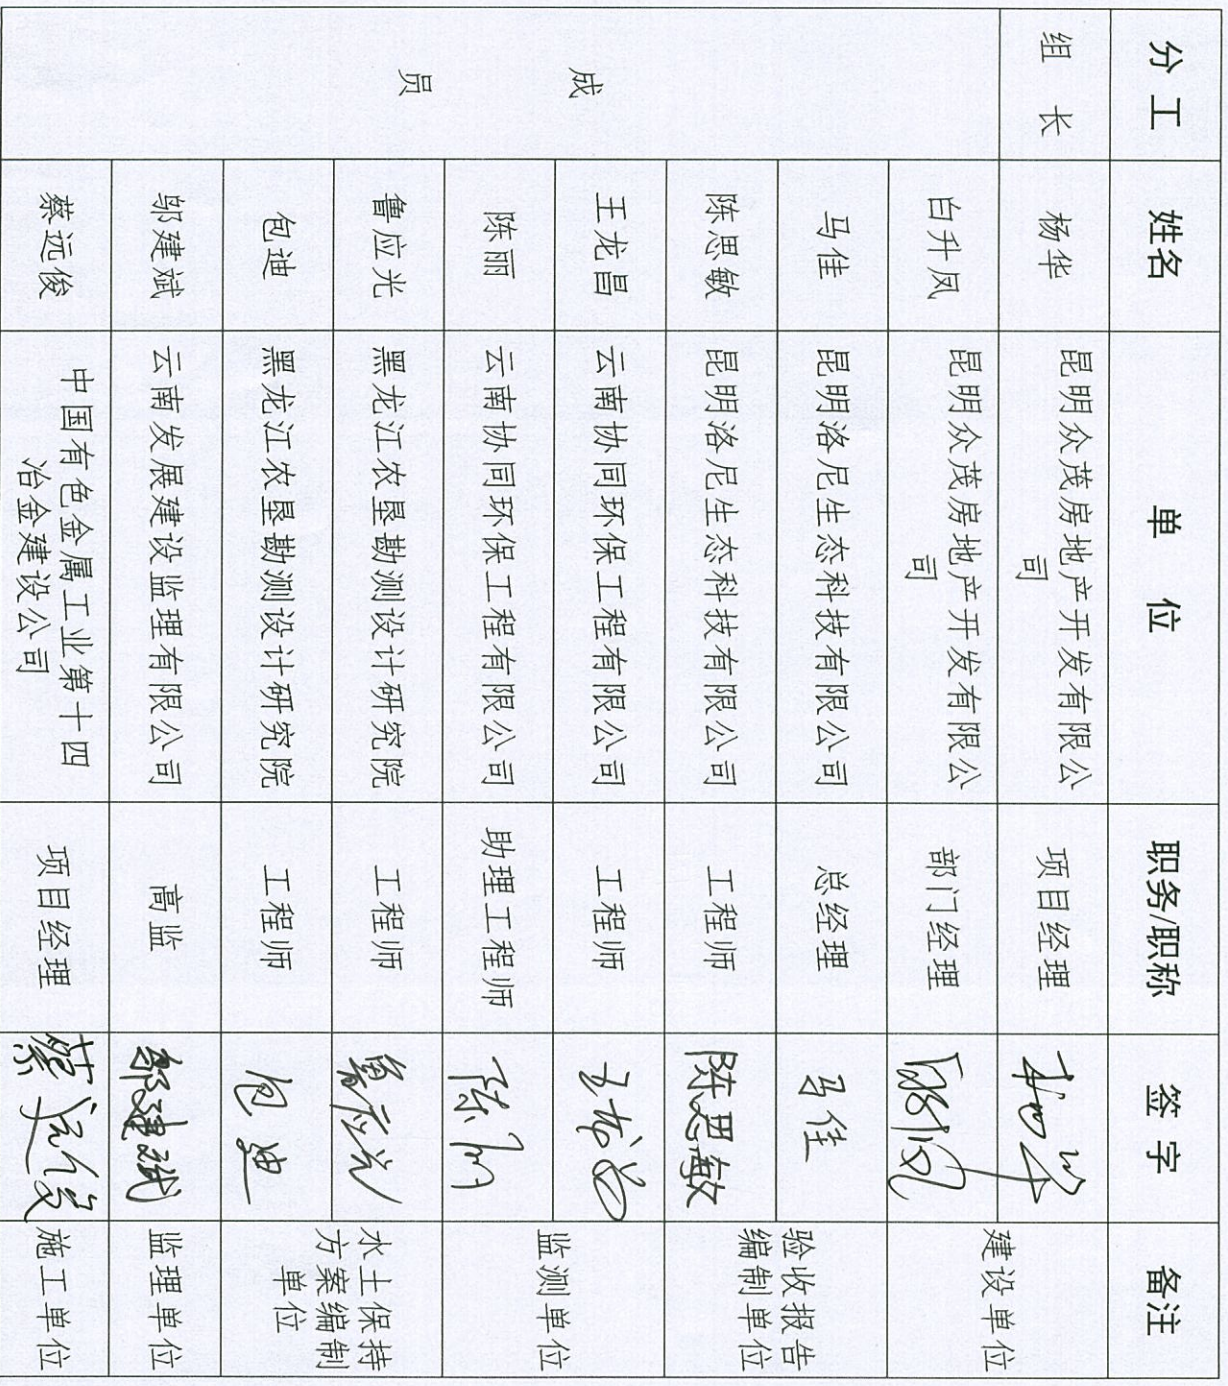 分 工 姓名 单 位 职务/职称 签 字 备注
组 长 杨华 昆明众茂房地产开发有限公
司 项目经理 杨华 建设单位
成 员
白升凤 昆明众茂房地产开发有限公
司 部门经理 白升凤
马佳 昆明洛尼生态科技有限公司 总经理 马佳 验收报告
编制单位
陈思敏 昆明洛尼生态科技有限公司 工程师 陈思敏
王龙昌 云南协同环保工程有限公司 工程师 王龙昌 监测单位
陈丽 云南协同环保工程有限公司 助理工程师 陈丽
鲁应光 黑龙江农垦勘测设计研究院 工程师 鲁应光 水土保持
方案编制
单位
包迪 黑龙江农垦勘测设计研究院 工程师 包迪
邬建斌 云南发展建设监理有限公司 高监 邬建斌 监理单位
蔡远俊 中国有色金属工业第十四
冶金建设公司 项目经理 蔡远俊 施工单位